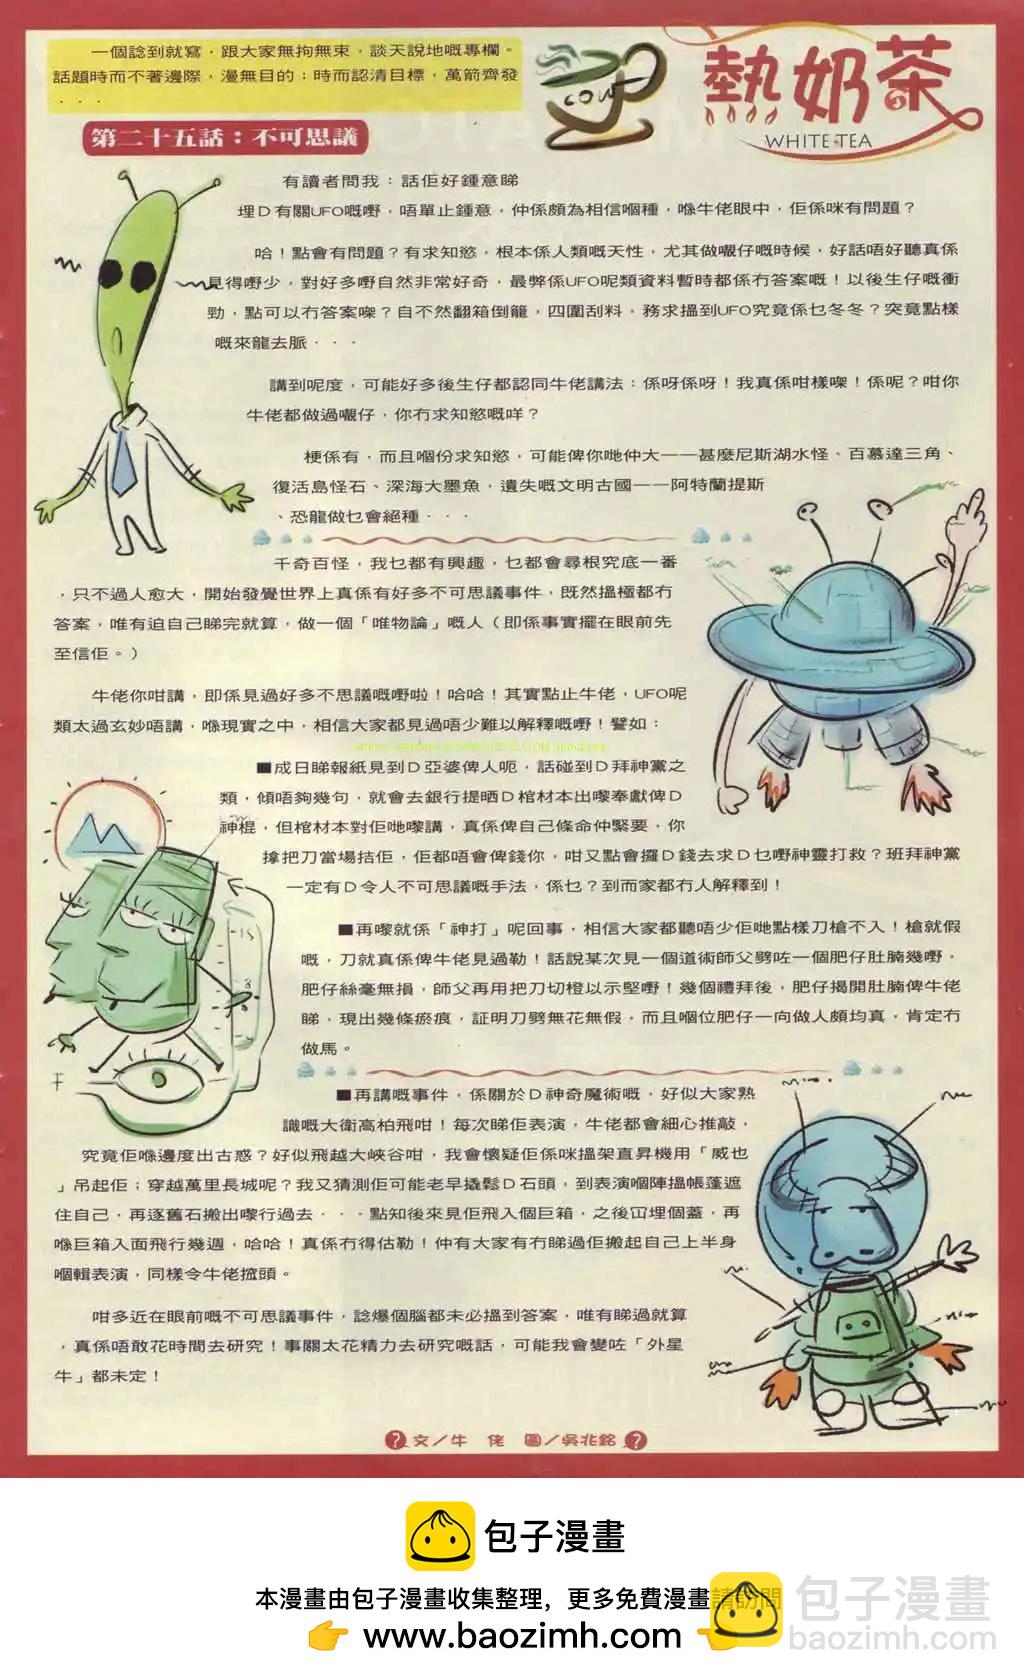 一個諗到就寫，跟大家無拘無束，談天說地嘅專欄。
話題時而不著邊際，漫無目的；時而認清目標，萬箭齊發
．．．
COW
熱奶茶
WHITE TEA
第二十五話：不可思議
有讀者問我：話佢好鍾意睇
埋Ｄ有關UFO嘅嘢，唔單止鍾意，仲係頗為相信嗰種，喺牛佬眼中，佢係咪有問題？
哈！點會有問題？有求知慾，根本係人類嘅天性，尤其做𡃁仔嘅時候，好話唔好聽真係
見得嘢少，對好多嘢自然非常好奇，最弊係UFO呢類資料暫時都係冇答案嘅！以後生仔嘅衝
勁，點可以冇答案㗎？自不然翻箱倒籠，四圍刮料，務求搵到UFO究竟係乜冬冬？突竟點樣
嘅來龍去脈．．．
講到呢度，可能好多後生仔都認同牛佬講法：係呀係呀！我真係咁樣㗎！係呢？咁你
牛佬都做過𡃁仔，你冇求知慾嘅咩？
梗係有，而且嗰份求知慾，可能俾你哋仲大——甚麼尼斯湖水怪、百慕達三角、
復活島怪石、深海大墨魚，遺失嘅文明古國——阿特蘭提斯
、恐龍做乜會絕種．．．
千奇百怪，我乜都有興趣，乜都會尋根究底一番
，只不過人愈大，開始發覺世界上真係有好多不可思議事件，既然搵極都冇
答案，唯有迫自己睇完就算，做一個「唯物論」嘅人（即係事實擺在眼前先
至信佢。）
牛佬你咁講，即係見過好多不思議嘅嘢啦！哈哈！其實點止牛佬，UFO呢
類太過玄妙唔講，喺現實之中，相信大家都見過唔少難以解釋嘅嘢！譬如：
■成日睇報紙見到Ｄ亞婆俾人呃，話碰到Ｄ拜神黨之
類，傾唔夠幾句，就會去銀行提晒Ｄ棺材本出嚟奉獻俾Ｄ
神棍，但棺材本對佢哋嚟講，真係俾自己條命仲緊要，你
揸把刀當場拮佢，佢都唔會俾錢你，咁又點會攞Ｄ錢去求Ｄ乜嘢神靈打救？班拜神黨
一定有Ｄ令人不可思議嘅手法，係乜？到而家都冇人解釋到！
■再嚟就係「神打」呢回事，相信大家都聽唔少佢哋點樣刀槍不入！槍就假
嘅，刀就真係俾牛佬見過勒！話說某次見一個道術師父劈咗一個肥仔肚腩幾嘢，
肥仔絲毫無損，師父再用把刀切橙以示堅嘢！幾個禮拜後，肥仔揭開肚腩俾牛佬
睇，現出幾條瘀痕，証明刀劈無花無假，而且嗰位肥仔一向做人頗均真，肯定冇
做馬。
■再講嘅事件，係關於Ｄ神奇魔術嘅，好似大家熟
識嘅大衛高柏飛咁！每次睇佢表演，牛佬都會細心推敲，
究竟佢喺邊度出古惑？好似飛越大峽谷咁，我會懷疑佢係咪搵架直昇機用「威也
」吊起佢；穿越萬里長城呢？我又猜測佢可能老早撬鬆Ｄ石頭，到表演嗰陣搵帳蓬遮
住自己，再逐舊石搬出嚟行過去．．．點知後來見佢飛入個巨箱，之後冚埋個蓋，再
喺巨箱入面飛行幾週，哈哈！真係冇得估勒！仲有大家有冇睇過佢搬起自己上半身
嗰輯表演，同樣令牛佬𢫏頭。
咁多近在眼前嘅不可思議事件，諗爆個腦都未必搵到答案，唯有睇過就算
，真係唔敢花時間去研究！事關太花精力去研究嘅話，可能我會變咗「外星
牛」都未定！
文／牛 佬 圖／吳兆銘
包子漫畫
本漫畫由包子漫畫收集整理，更多免費漫畫請訪問
www.baozimh.com
包子漫畫
baozimh.com